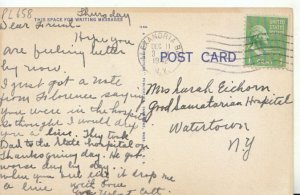 PL658
Thursday
THIS SPACE FOR WRITING MESSAGES
Dear Friend-
Hope you
are feeling better
by now.
I just got a note
from Florence saying
you were in the hospital
so thought I would drop
you a line. They took
Dad to the State hospital on
Thanksgiving day. He got
worse day by day.
when you
a line
ALEXANDRIA B
DEC
9
N.Y.
1 CENT 1
POST CARD
Mrs Sarah Eichorn
Good Samaratian Hospital
Watertown
N Y